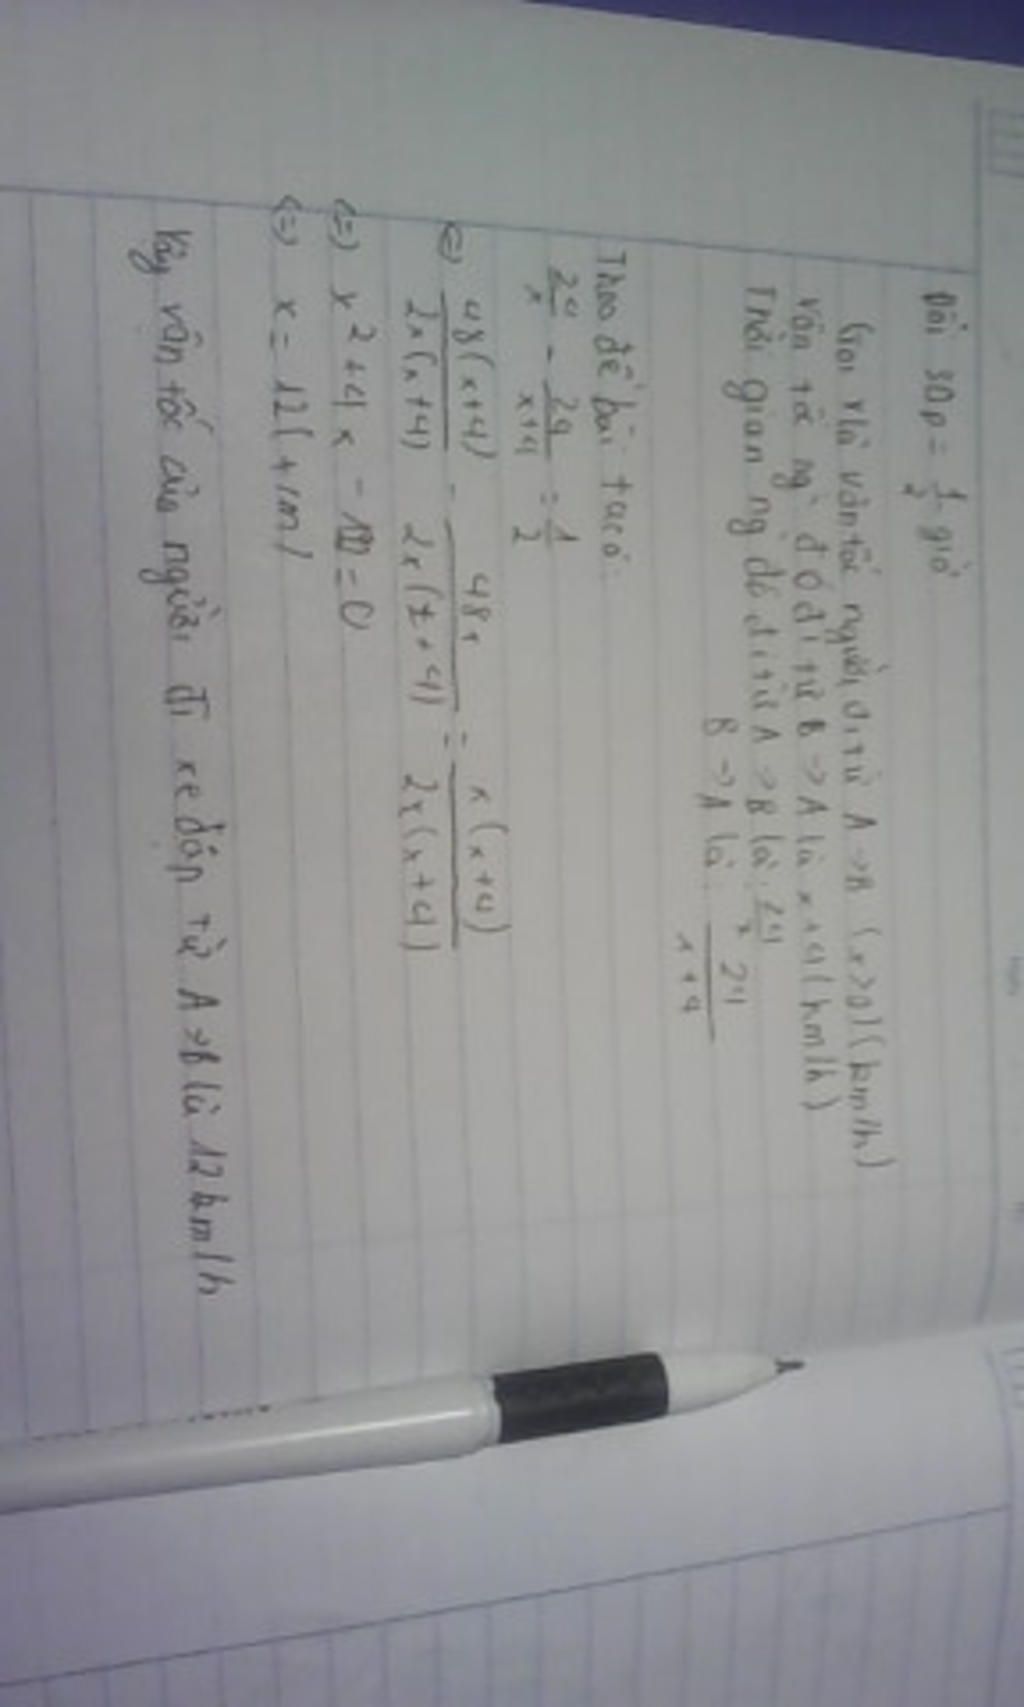 Đổi 30p = 1/2 giờ
Gọi x là vận tốc người đi từ A → B (x>0) (km/h)
Vận tốc ng` đó đi từ B → A là x+4 (km/h)
Thời gian ng đó đi từ A → B là: 24/x
B → A là: 24/x+4
Theo đề bài ta có:
24/x - 24/x+4 = 1/2
48(x+4)/2x(x+4) - 48x/2x(x+4) = x(x+4)/2x(x+4)
(=) x² + 4x - = 0
(=) x = 12 (
Vậy vận tốc của người đi xe đạp từ A → B là 12km/h